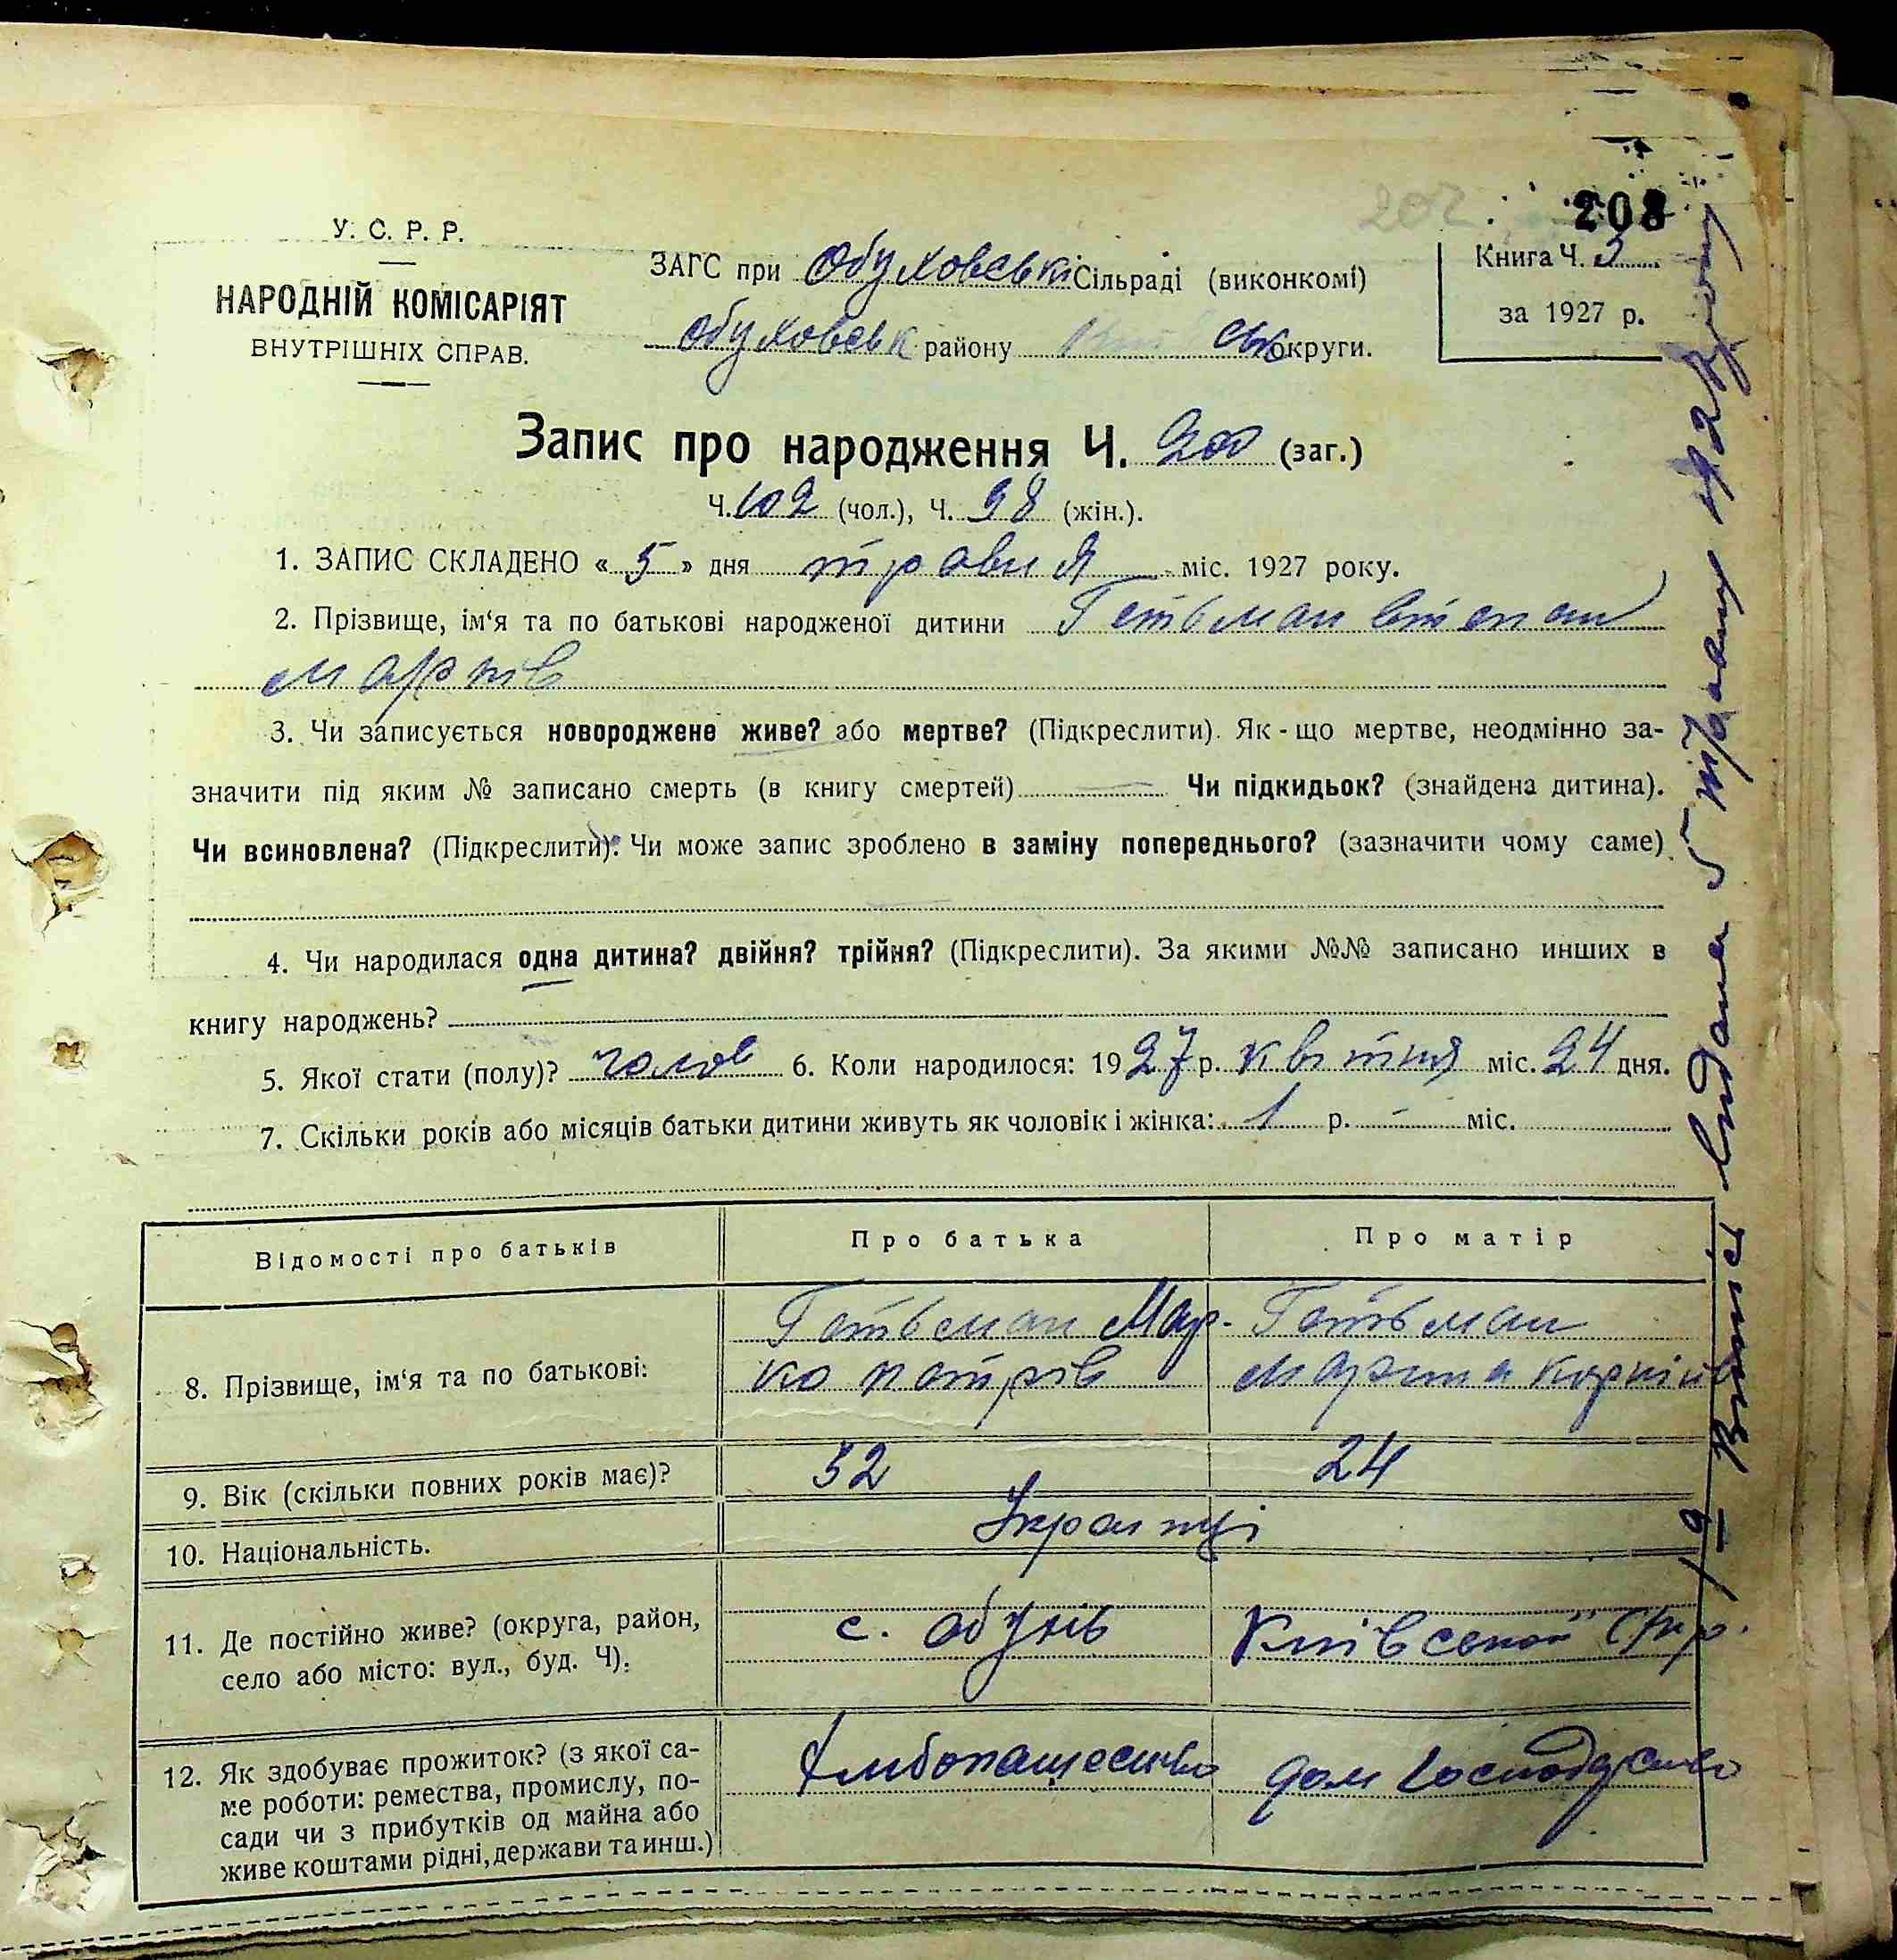 202
208
У. С. Р. Р.
НАРОДНІЙ КОМІСАРІЯТ
ВНУТРІШНІХ СПРАВ.
ЗАГС при Обуховській Сільраді (виконкомі)
Обуховськ району ськ округи.
Книга Ч. 3
за 1927 р.
Запис про народження Ч. 200 (заг.)
Ч. 102 (чол.), Ч. 98 (жін.).
1. ЗАПИС СКЛАДЕНО « 5 » дня травня міс. 1927 року.
2. Прізвище, ім‘я та по батькові народженої дитини Гетьман Степан
Марків
3. Чи записується новороджене живе? або мертве? (Підкреслити). Як - що мертве, неодмінно за-
значити під яким № записано смерть (в книгу смертей) — Чи підкидьок? (знайдена дитина).
Чи всиновлена? (Підкреслити). Чи може запис зроблено в заміну попереднього? (зазначити чому саме)
4. Чи народилася одна дитина? двійня? трійня? (Підкреслити). За якими №№ записано инших в
книгу народжень?
5. Якої стати (полу)? чолов 6. Коли народилося: 1927 р. квітня міс. 24 дня.
7. Скільки років або місяців батьки дитини живуть як чоловік і жінка: 1 р. - міс.
Відомості про батьків Про батька Про матір
8. Прізвище, ім‘я та по батькові: Гетьман Мар- Гетьман
ко Петрів Марина Корніів
9. Вік (скільки повних років має)? 32 24
10. Національність. Українці
11. Де постійно живе? (округа, район,
село або місто: вул., буд. Ч). с. Обухів Київської Окр.
12. Як здобуває прожиток? (з якої са-
ме роботи: ремества, промислу, по-
сади чи з прибутків од майна або
живе коштами рідні, держави та инш.) Хлібопашество дом господарство
Витяг видано 5 травня 1927 року